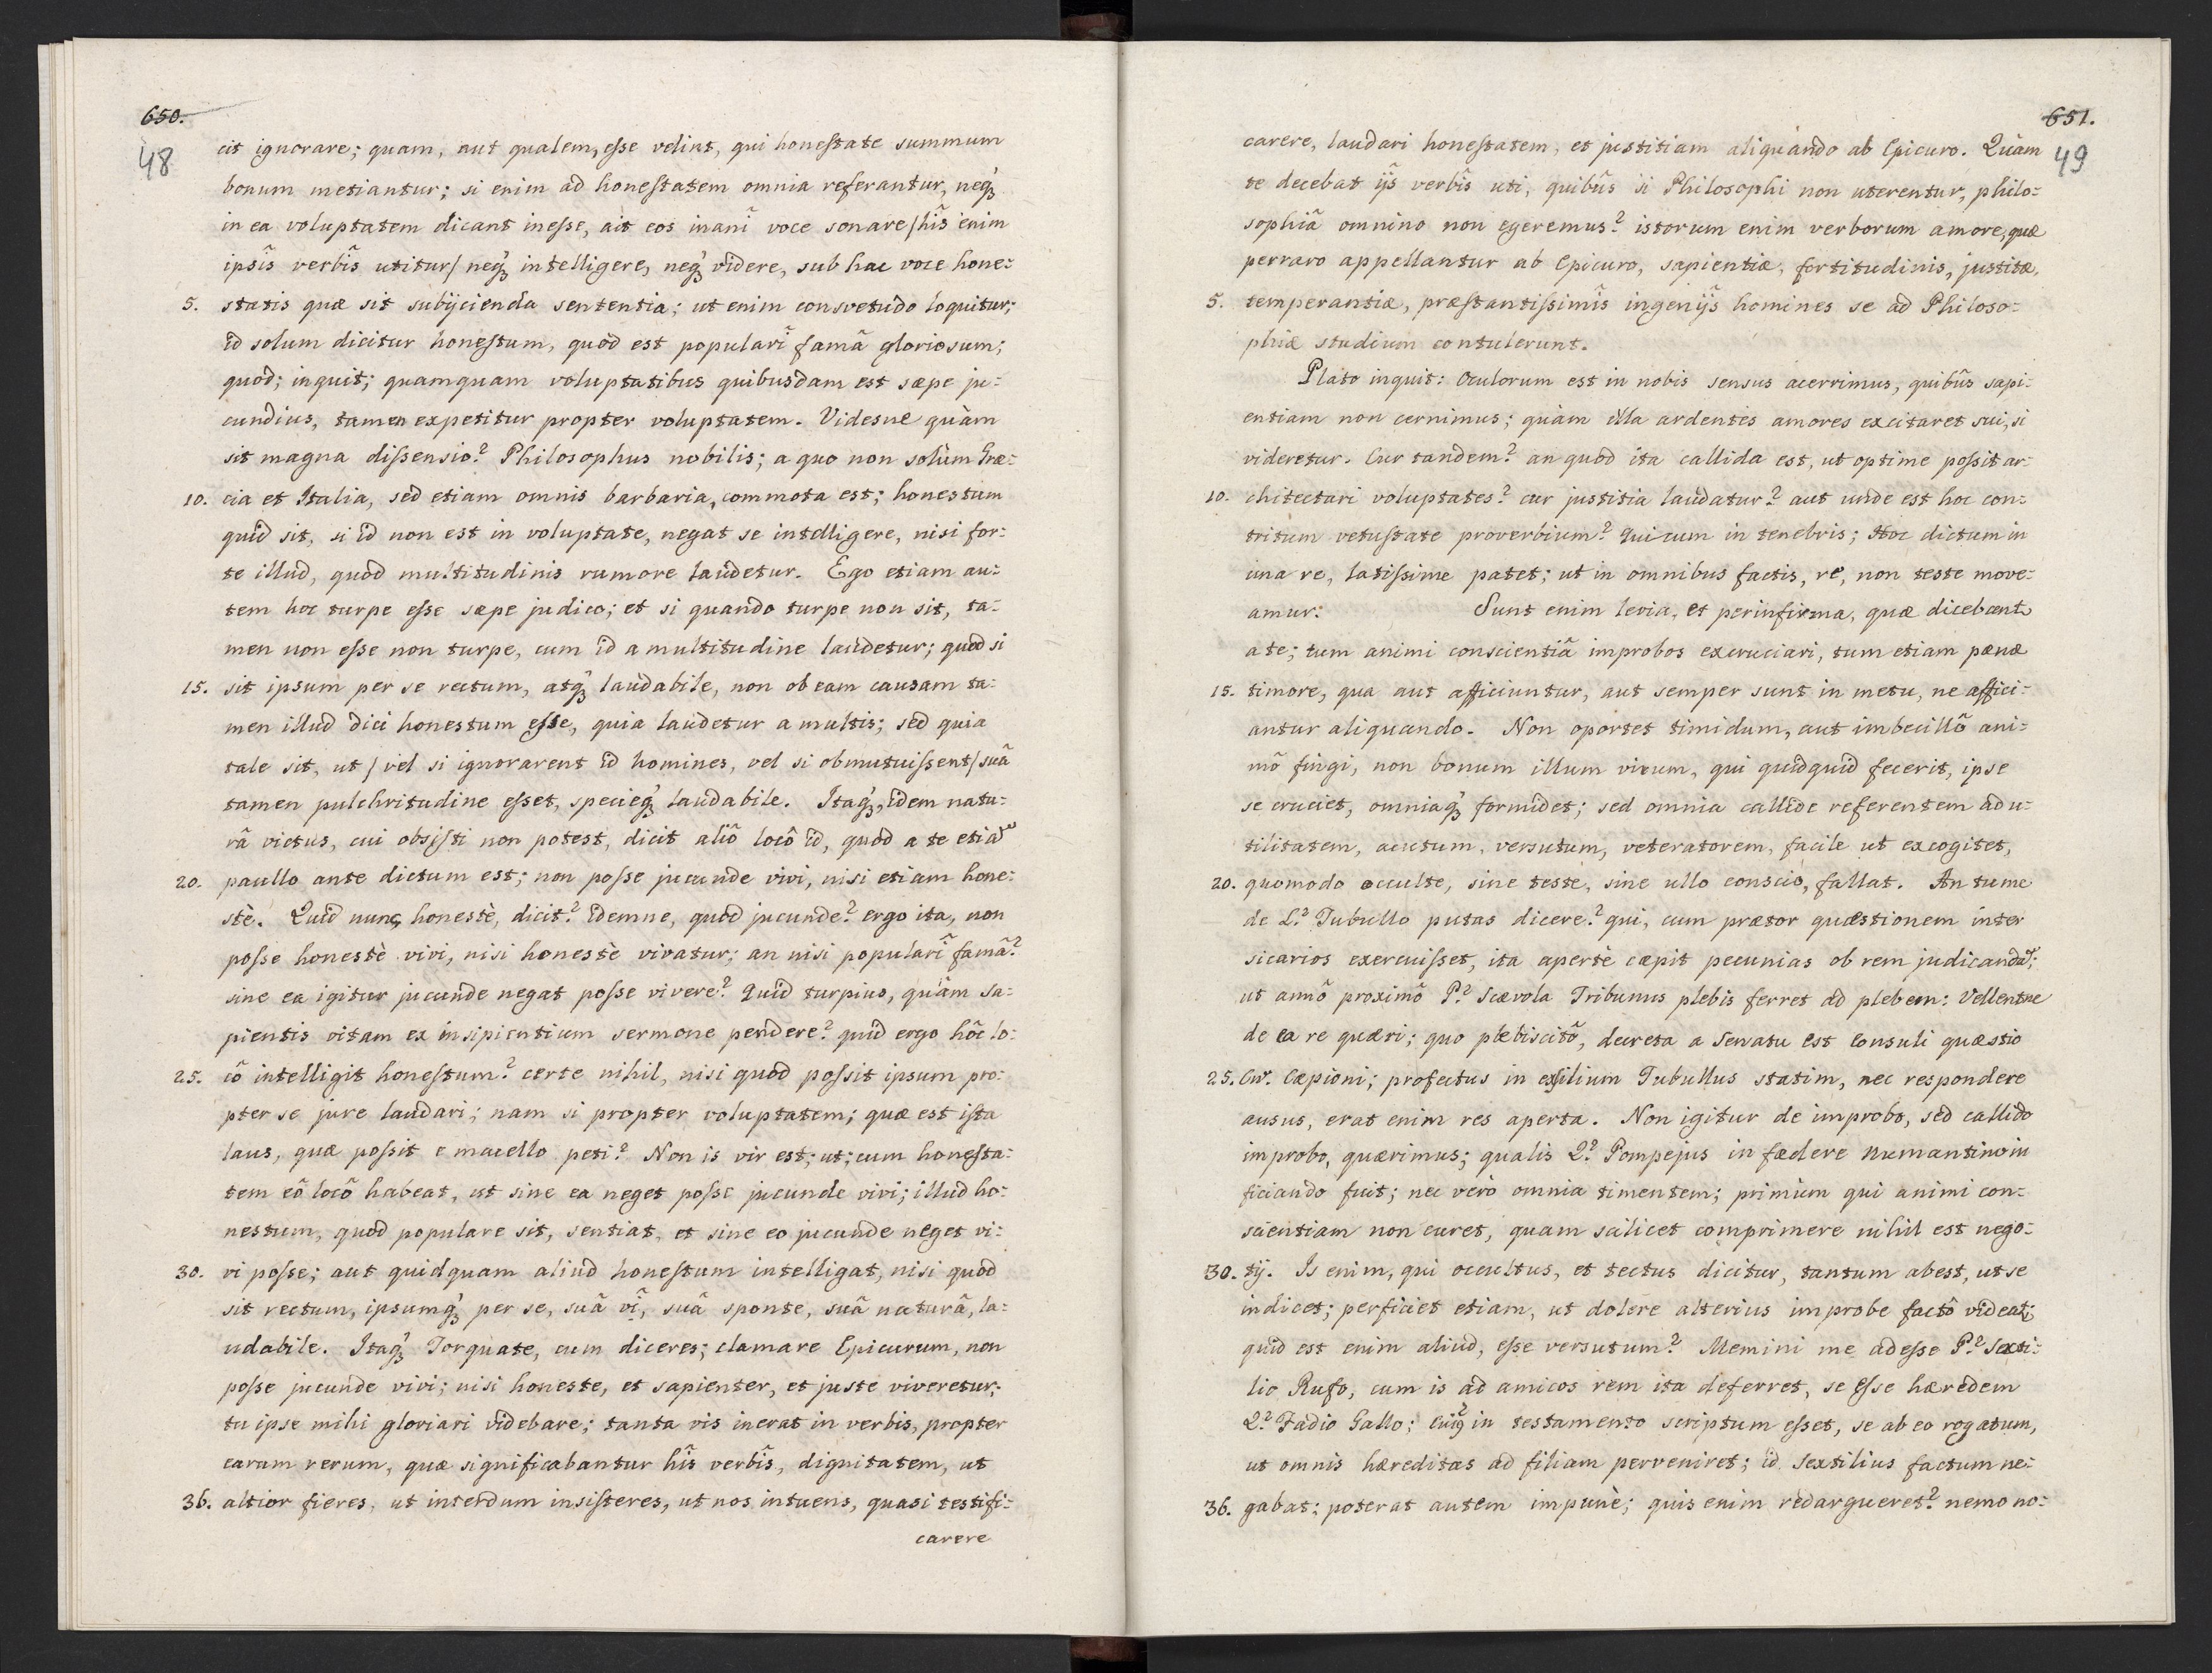 650.
48
cit ignorare; quam, aut qualem, esse velint, qui honestate summum
bonum metiantur; si enim ad honestatem omnia referantur, neq́ꝫ
in ea voluptatem dicant inesse, ait eos inanî voce sonare / hîs enim
ipsîs verbîs utitur / neq́ꝫ intelligere, neq́ꝫ videre, sub hac voce hone=
5. statis quæ sit subijcienda sententia; ut enim consvetudo loquitur;
id solum dicitur honestum, quod est popularî famâ gloriosum;
quod; inquit; quamquam voluptatibus quibusdam est sæpe ju=
cundius, tamen expetitur propter voluptatem. Videsne quàm
sit magna dissensio? Philosophus nobilis; a quo non solùm Græ=
10. cia et Italia, sed etiam omnis barbaria, commota est; honestum
quid sit, si id non est in voluptate, negat se intelligere, nisi for=
te illud, quod multitudinis rumore laudetur. Ego etiam au=
tem hoc turpe esse sæpe judico; et si quando turpe non sit, ta=
men non esse non turpe, cum id a multitudine laudetur; quod si
15. sit ipsum per se rectum, atq́ꝫ laudabile, non ob eam causam ta=
men illud dici honestum esse, quia laudetur a multis; sed quia
tale sit, ut / vel si ignorarent id homines, vel si obmutuissent / suâ
tamen pulchritudine esset, specieq́ꝫ laudabile. Itaq́ꝫ, idem natu=
râ victus, cui obsisti non potest, dicit aliô locô id, quod a te etiam
20. paullo ante dictum est; non posse jucunde vivi, nisi etiam hone=
stè. Quid nunc honestè, dicit? idemne, quod jucunde? ergo ita, non
posse honestè vivi, nisi honestè vivatur; an nisi popularî famâ?
sine ea igitur jucunde negat posse vivere? Quid turpius, quàm sa=
pientis vitam ex insipientium sermone pendere? quid ergo hôc lo=
25. cô intelligit honestum? certe nihil, nisi quod possit ipsum pro=
pter se jure laudari; nam si propter voluptatem; quæ est ista
laus, quæ possit e macello peti? Non is vir est; ut; cum honesta=
tem eô locô habeat, ut sine ea neget posse jucunde vivi; illud ho=
nestum, quod populare sit, sentiat, et sine eo jucunde neget vi=
30. vi posse; aut quidquam aliud honestum intelligat, nisi quod
sit rectum, ipsumq́ꝫ per se, suâ vî, suâ sponte, suâ naturâ, la=
udabile. Itaq́ꝫ Torquate, cum diceres; clamare Epicurum, non
posse jucunde vivi; nisi honeste, et sapienter, et juste viveretur;
tu ipse mihi gloriari videbare; tanta vis inerat in verbis, propter
earum rerum, quæ significabantur hîs verbîs, dignitatem, ut
36. altior fieres, ut interdum insisteres, ut nos intuens, quasi testifi=
carere
651.
49
carere, laudari honestatem, et justitiam aliquando ab Epicuro. Quàm
te decebat ijs verbîs uti, quibûs si Philosophi non uterentur, philo=
sophiâ omnino non egeremus? istorum enim verborum amore, quæ
perraro appellantur ab Epicuro, sapientiæ, fortitudinis, justitæ,
5. temperantiæ, præstantissimîs ingenijs homines se ad Philoso=
phiæ studium contulerunt.
Plato inquit: Oculorum est in nobis sensus acerrimus, quibûs sapi=
entiam non cernimus; quàm illa ardentes amores excitaret sui, si
videretur. Cur tandem? an quod ita callida est, ut optime possit ar=
10. chitectari voluptates? cur justitia laudatur? aut unde est hoc con=
tritum vetustate proverbium? Quicum in tenebris; Hoc dictum in
una re, latissime patet; ut in omnibus factis, re, non teste move=
amur: Sunt enim levia, et perinfirma, quæ dicebant
a te; tum animi conscientiâ improbos excruciari, tum etiam pænæ
15. timore, qua aut afficiuntur, aut semper sunt in metu, ne affici=
antur aliquando. Non oportet timidum, aut imbecillô ani=
mô fingi, non bonum illum virum, qui quidquid fecerit, ipse
se cruciet, omniaq́ꝫ formidet; sed omnia callide referentem ad u=
tilitatem, acutum, versutum, veteratorem, facile ut excogitet,
20. quomodo occulte, sine teste, sine ullo conscio, fallat. An tu me
de L.? Tubullo putas dicere? qui, cum prætor quæstionem inter
sicarios exercuisset, ita apertè cæpit pecunias ob rem judicandam;
ut annô proximô P.? Scævola Tribunus plebis ferret ad plebem: Vellentne
de ea re quæri; quo plebiscitô, decreta a Senatu est Consuli quæstio
25. Cn. Cæpioni; profectus in exsilium Tubullus statim, nec respondere
ausus, erat enim res aperta. Non igitur de improbo, sed callido
improbo, quærimus; qualis Q.? Pompejus in fædere Numantino in
ficiando fuit; nec verò omnia timentem; primùm qui animi con=
scientiam non curet, quam scilicet comprimere nihil est nego=
30. tij. Is enim, qui occultus, et tectus dicitur, tantum abest, ut se
indicet; perficiet etiam, ut dolere alterius improbe factô videat;
quid est enim aliud, esse versutum? Memini me adesse P.? Sexti=
lio Rufo, cum is ad amicos rem ita deferret, se esse hæredem
Q.? Fadio Gallo; cuiꝰ in testamento scriptum esset, se ab eo rogatum,
ut omnis hæreditas ad filiam perveniret; id Sextilius factum ne=
36. gabat; poterat autem impunè; quis enim redargueret? nemo no=